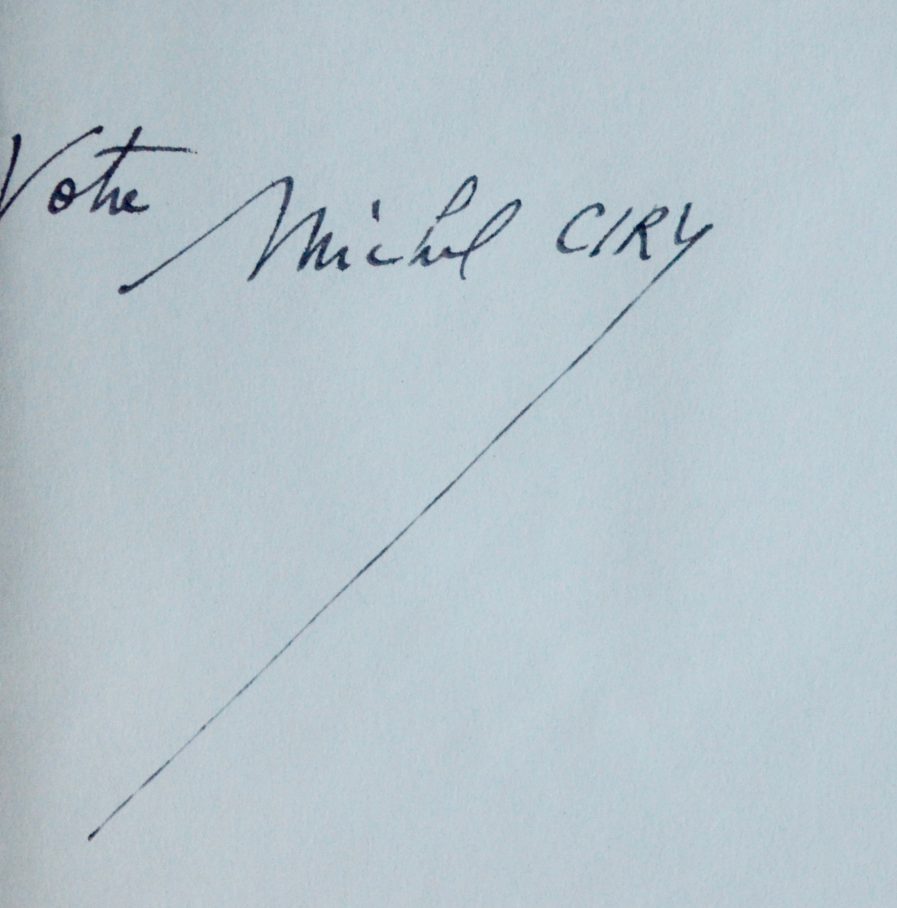 Votre
Michel CIRY